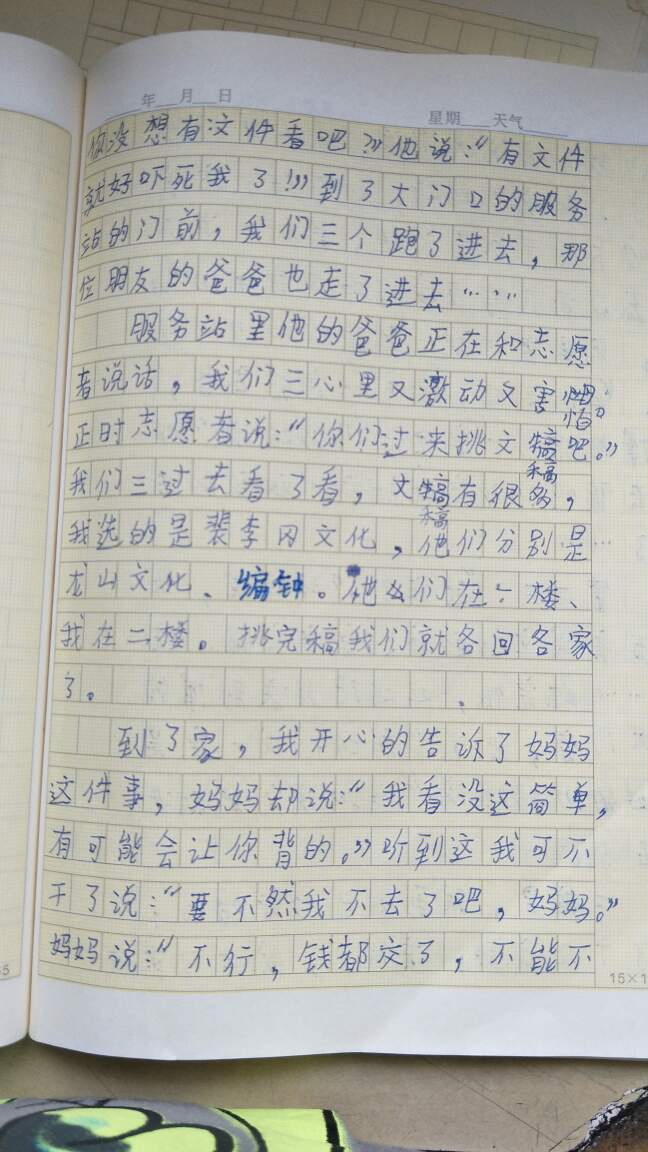 年 月 日
星期 天气
你没想有文件看吧?”他说:“有文件
就好吓死我了!”到了大门口的服务
站的门前,我们三个跑了进去,那
位朋友的爸爸也走了进去……
服务站里他的爸爸正在和志愿
者说话,我们三心里又激动又害怕。
正时志愿者说:“你们过来挑文稿吧。”
我们三过去看了看,文稿有很多,
我选的是裴李冈文化,他们分别是
龙山文化、编钟。他们在一楼、
我在二楼。挑完稿我们就各回各家
了。
到了家,我开心的告诉了妈妈
这件事,妈妈却说:“我看没这简单,
有可能会让你背的。”听到这我可不
干了说:“要不然我不去了吧,妈妈。”
妈妈说:“不行,钱都交了,不能不
15×1